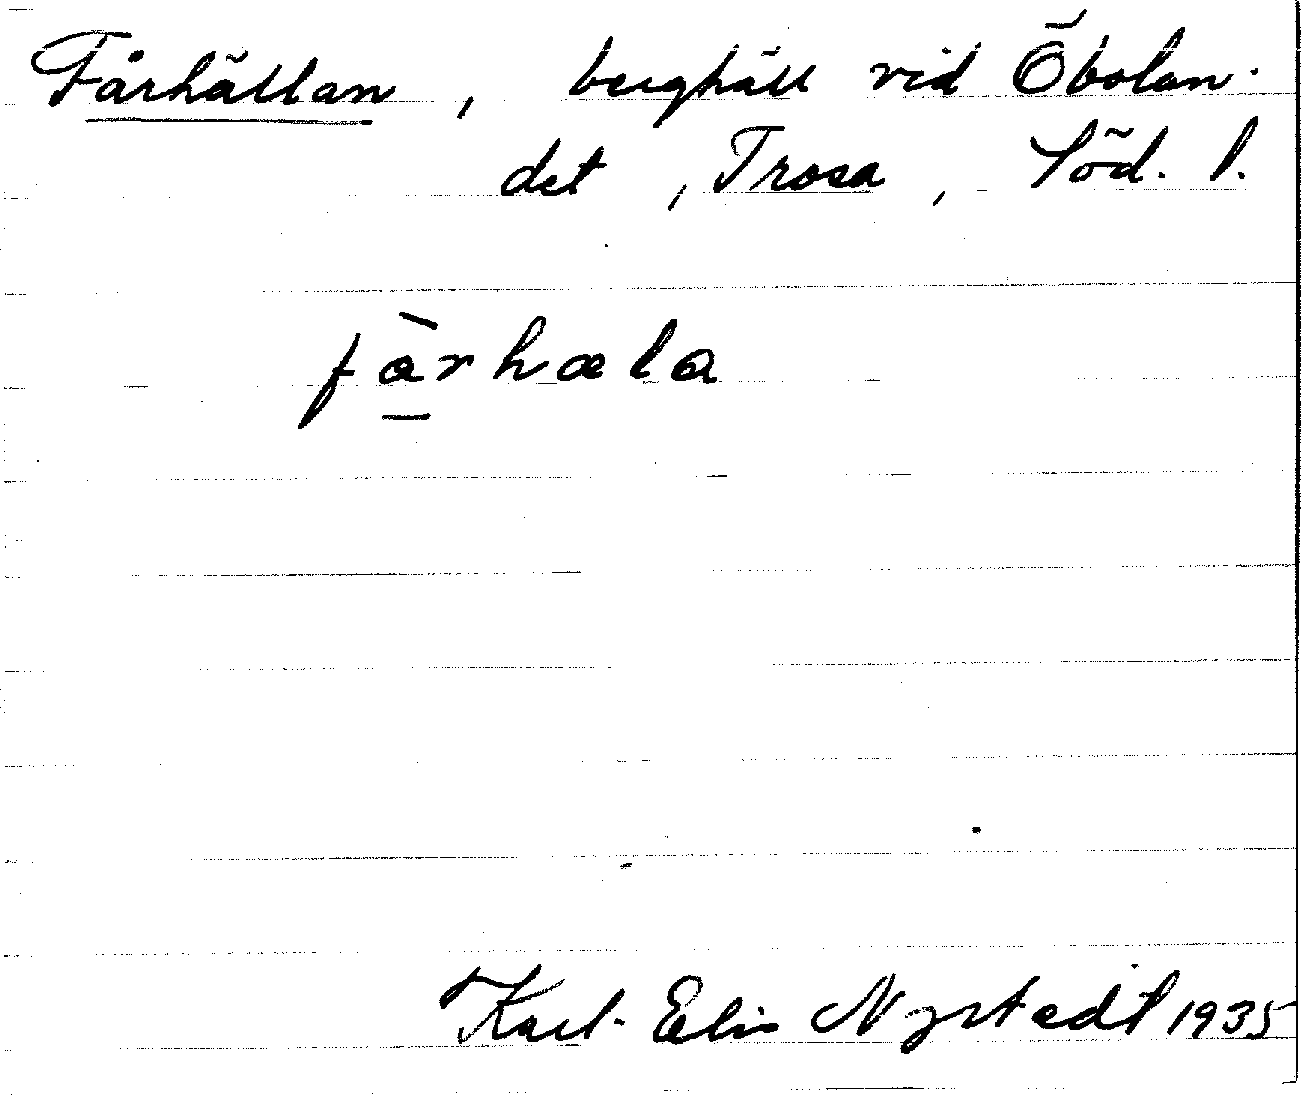 Fårhällan, berghäll vid Öbolan-
det, Trosa, Söd. l.
fàrhæla
Karl-Elis Nystedt 1935